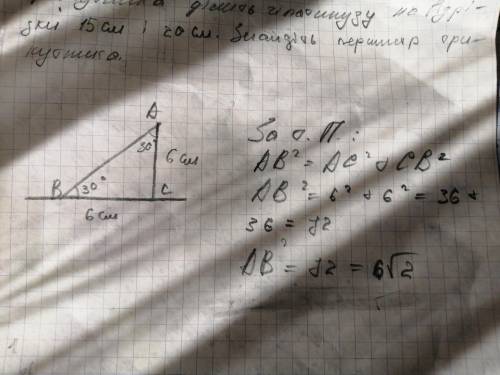 ділить гіпотенузу на відрі-
зки 15 см і 20 см. Знайдіть периметр три-
кутника.
A
30°
6 см
B
30°
C
6 см
За т. П:
AB² = AC² + CB²
AB² = 6² + 6² = 36 +
36 = 72
AB² = 72 = 6√2